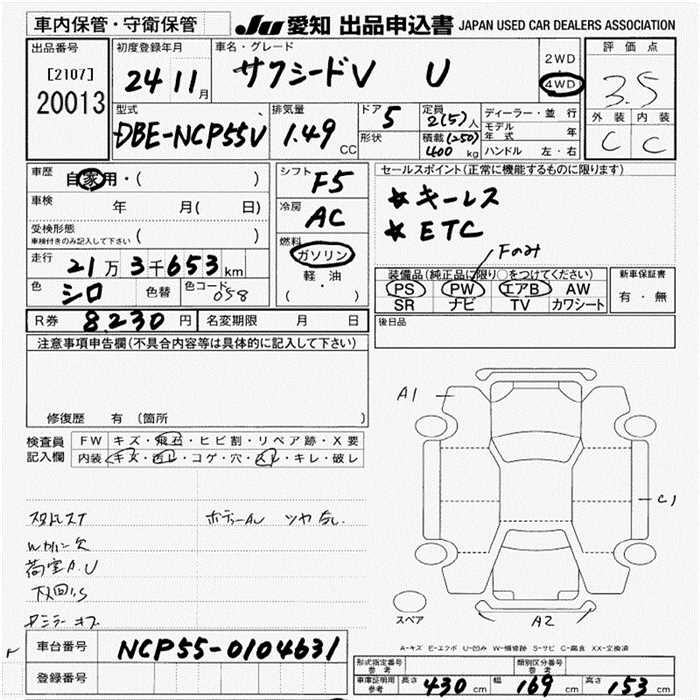 車内保管・守衛保管
JU 愛知 出品申込書 JAPAN USED CAR DEALERS ASSOCIATION
出品番号
[2107]
20013
初度登録年月
24 11月
車名・グレード
サクシードV U
2WD
4WD
評価点
3.5
外装 内装
C C
型式
DBE-NCP55V
排気量
1.49 CC
ドア 5
形状
定員 2(5)人
積載 (250)
400 kg
ディーラー・並行
モデル年式 年
ハンドル 左・右
車歴 自家用・( )
車検 年 月( 日)
受検形態
車検付きのみ記入して下さい ( )
走行 21万3千653km
色 シロ 色替 色コード 058
シフト F5
冷房 AC
燃料
ガソリン
軽・油
( ・ )
セールスポイント(正常に機能するものに限ります)
★キーレス
★ETC
Fのみ
装備品(純正品に限り○をつけてください)
PS PW エアB AW
SR ナビ TV カワシート
新車保証書
有・無
R券 8,230円 名変期限 月 日
後日品
注意事項申告欄(不具合内容等は具体的に記入して下さい)
修復歴 有 〔箇所 〕
検査員記入欄
FW キズ・飛石・ヒビ割・リペア跡・X要
内装 キズ・汚レ・コゲ・穴・スレ・キレ・破レ
ボディーAU ツヤ無し
荷室A.U
下回りS
A1
C1
A2
スペア
A-キズ E-エクボ U-凹み W-補修跡 S-サビ C-腐食 XX-交換済
車台番号 NCP55-0104631
登録番号
形式指定番号 参考
類別区分番号 参考
車庫証明用 参考 長さ 430cm 幅 169cm 高さ 153cm